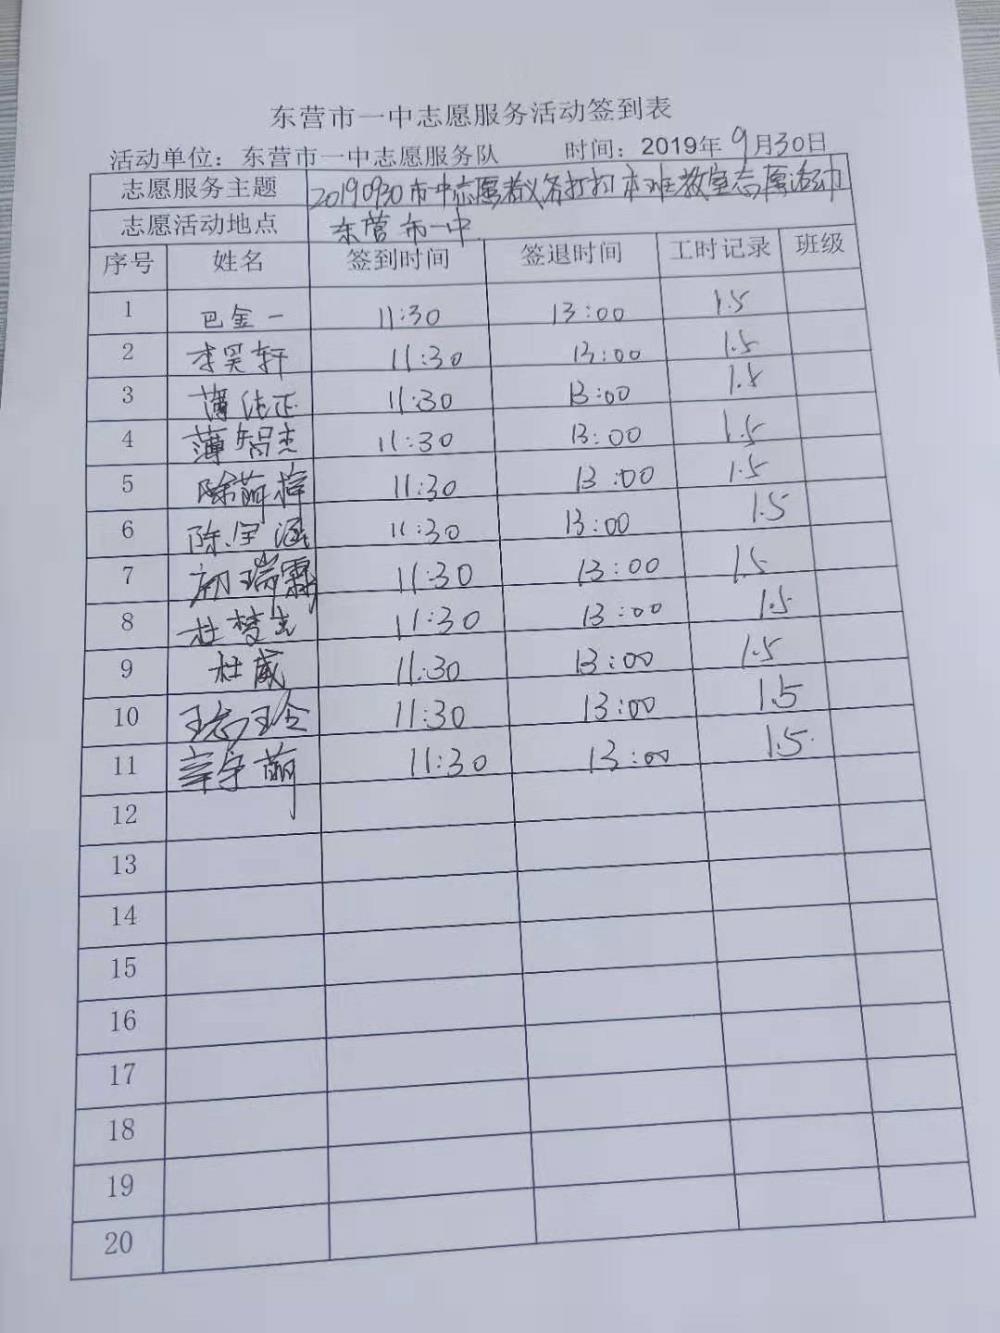 东营市一中志愿服务活动签到表
活动单位：东营市一中志愿服务队 时间：2019年9月30日
志愿服务主题 20190930市一中志愿者义务打扫本班教室志愿活动
志愿活动地点 东营市一中
序号 姓名 签到时间 签退时间 工时记录 班级
1 巴金一 11:30 13:00 1.5
2 李昊轩 11:30 13:00 1.5
3 薄法正 11:30 13:00 1.5
4 薄智杰 11:30 13:00 1.5
5 11:30 13:00 1.5
6 陈 涵 11:30 13:00 1.5
7 初瑞霖 11:30 13:00 1.5
8 杜梦 11:30 13:00 1.5
9 杜威 11:30 13:00 1.5
10 11:30 13:00 1.5
11 11:30 13:00 1.5
12
13
14
15
16
17
18
19
20